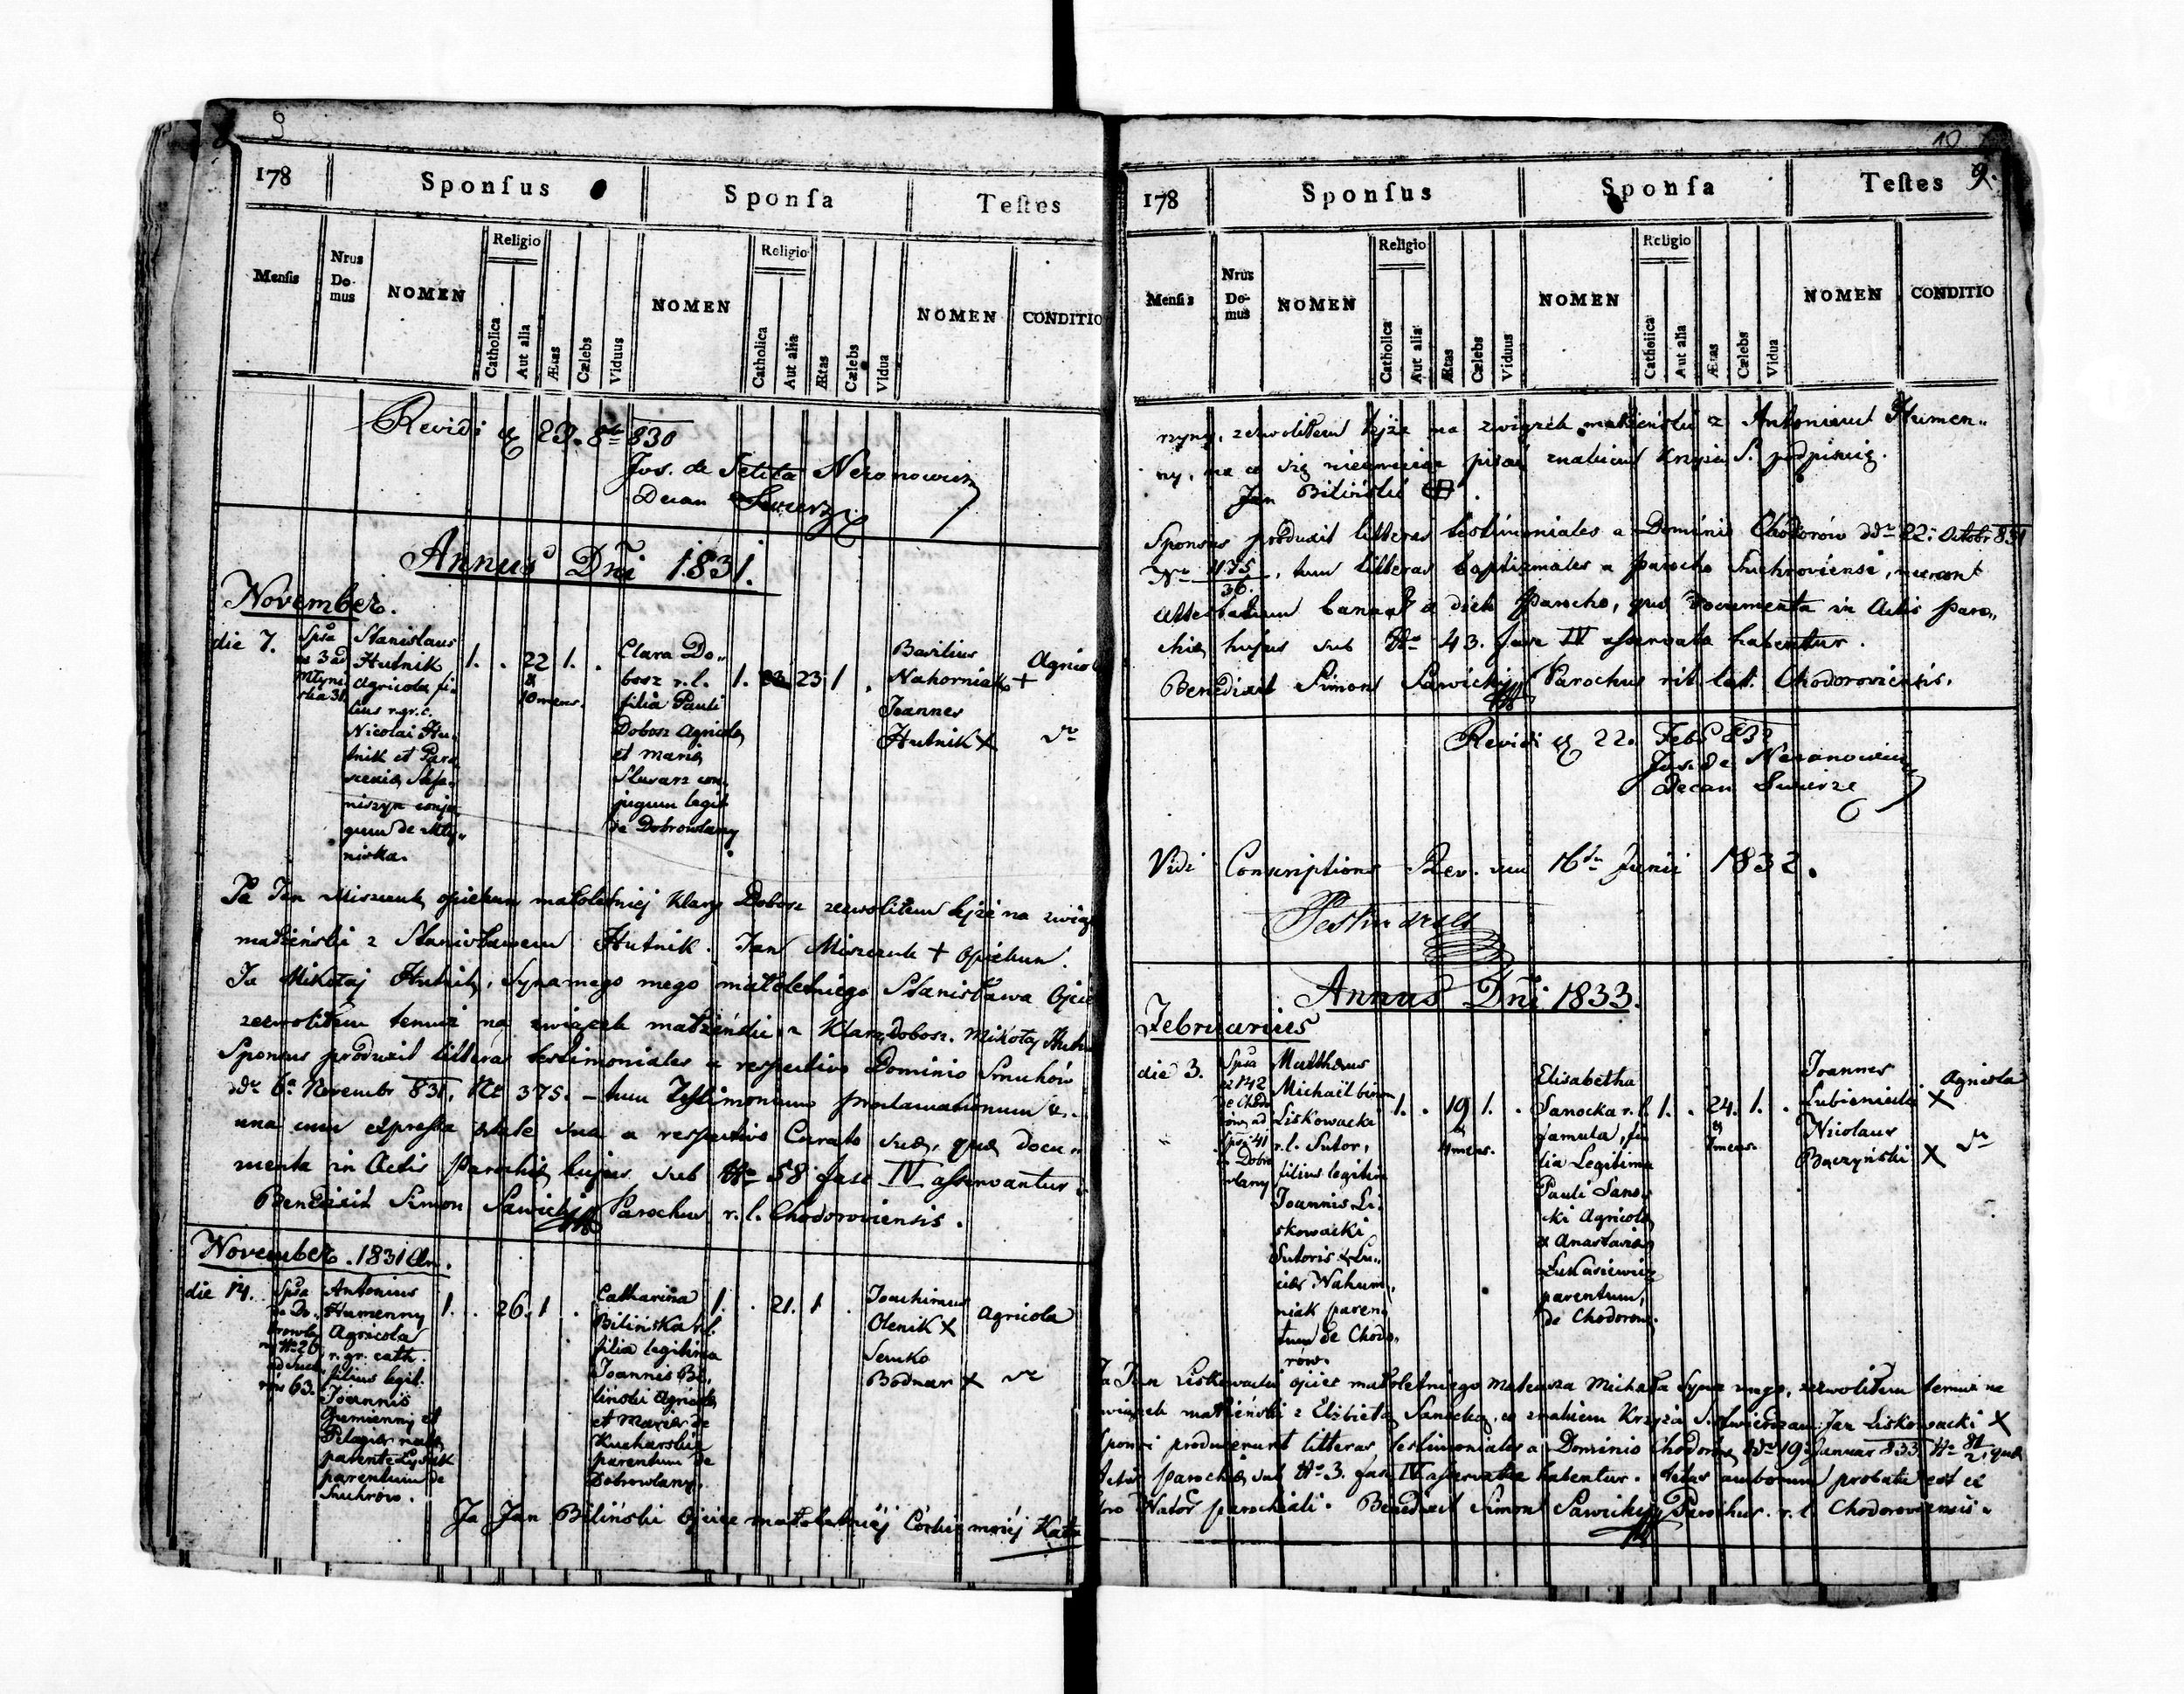 9
178
Sponsus
Sponsa
Testes
Mensis
Nrus Do-mus
NOMEN
Religio
Catholica
Aut alia
Ætas
Cælebs
Viduus
NOMEN
Religio
Catholica
Aut alia
Ætas
Cælebs
Vidua
NOMEN
CONDITIO
Revidi 29. 8br 830
Jos. de Neronowicz
Decan Swierz
Annus Dni 1831.
November.
die 7.
Spsa
Stanislaus
Hutnik
Agricola fi-
lius r. gr. c.
Nicolai Hu-
tnik et Para
scevia Stefa-
niszyn conju
gum de Mły-
niska.
1. . 22 1. .
&
10 mens.
Clara Do-
bosz r. l.
filia Pauli
Dobosz Agricola
et Maria
Slusarz con
jugum legit
de Dobrowlany
1. 23 1 .
Basilius
Nahorniak +
Joannes
Hutnik X
Agricol
Ja Jan Miszczuk opiekun małoletniej Klary Dobosz zezwoliłem tejże na związ
małżeński z Stanisławem Hutnik. Jan Miszczuk + Opiekun.
Ja Mikołaj Hutnik, Syna mego małoletniego Stanisława Ojcie
zezwoliłem temuż na związek małżeński z Klarą Dobosz. Mikołaj Hutn
Sponsus produxit litteras testimoniales a respectivo Dominio Smuchów
ddo 6a Novembr 831, Nr 375. – tum Testimonium proclamationum
una cum expressa aetate sua a respectivo Curato suo, qua docu-
menta in Actis Parochia hujus sub Nro 58 fasc IV asservantur.
Benedixit Simon Sawicki Parochus r. l. Chodoroviensis.
November. 1831 An.
die 14.
Spsa
de Do-
browla
ny Nro 20
63.
Antonius
Humenny
Agricola
r. gr. cath.
filius legit.
Joannis
Humienny et
Pelagia
parentum de
Suchrow.
1. . 26. 1 .
Catharina
Bilińska r. l.
filia legitima
Joannis Bi-
linski Agricola
et Maria de
Kucharskie
parentum de
Dobrowlany.
1. . 21. 1 .
Joachimus
Olenik X
Semko
Bodnar X
Agricola
Ja Jan Biliński Ojciec małoletniéj Córki mojéj Kata
10
9.
178
Sponsus
Sponsa
Testes
Mensis
Nrus Do-mus
NOMEN
Religio
Catholica
Aut alia
Ætas
Cælebs
Viduus
NOMEN
Religio
Catholica
Aut alia
Ætas
Cælebs
Vidua
NOMEN
CONDITIO
rzyny, zezwoliłem tejże na związek małżeński z Antonim Humen-
ny, na co się nieumiejąc pisać znakiem Krzyża S. podpisuję.
Jan Biliński
Sponsus produxit litteras testimoniales a Dominio Chodorów ddo 22: Octobr 831
Nro 475/36, tum litteras baptismales a Parocho Suchroviensi, necnon
attestatum a dicto Parocho, qua documenta in Actis Paro-
chia hujus sub Nro 43. fasc IV asservata habentur.
Benedixit Simon Sawicki Parochus rit. lat. Chodoroviensis.
Revidi 22. Feb 832
Jos. de Neronowicz
Decan Swierz
Vidi Conscriptions Rev. 16ten Junii 1832.
Annus Dni 1833.
Februarius
die 3.
Spsa
ex 142
de Chodo
row, ad
Spsi 41
in Dobro
wlany
Matthaeus
Michael bin.
Liskowacki
r. l. Sutor,
filius legitim
Joannis Li-
skowacki
Sutoris & Lu-
cia Nahum.
niak paren
tum de Chodo-
row.
1. . 19 1. .
&
4 mens.
Elisabetha
Sanocka r. l.
famula, fi
lia Legitima
Pauli Sano-
cki Agricola
& Anastasia
Łukasiewicz
parentum,
de Chodorow.
1. . 24. 1. .
&
7 mens.
Joannes
Lubieniecki X
Nicolaus
Baczyński X
Agricola
Ja Jan Liskowacki ojciec małoletniego Mateusza Michała Syna mego, zezwoliłem temuż na
związek małżeński z Elżbietą Sanocką, co znakiem Krzyża S. stwierdzam. Jan Liskowacki X
Sponsi produxerunt litteras testimoniales a Dominio Chodorow ddo 19: Januar 833. Nro qua
Actis parochia sub Nro 3. fasc IV asservata habentur. Aetas amborum probata est ex
libro Nator parochiali. Benedixit Simon Sawicki Parochus r. l. Chodoroviensis.